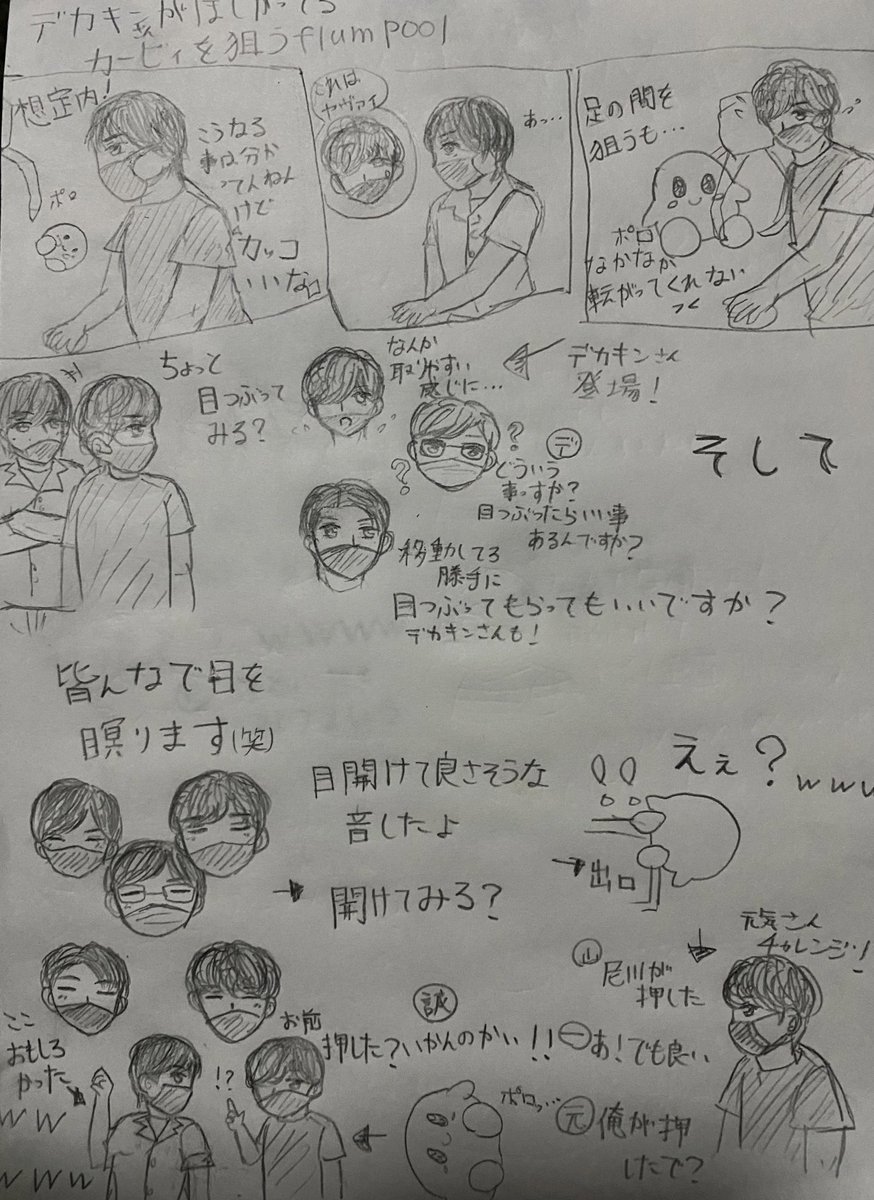 デカキンがほしがってる
カービィを狙うflumpool
想定内!
ポロ
こうなる
事は分か
ってんねん
けど
カッコ
いいな
これは
ヤヴァイ
あっ…
足の間を
狙うも…
ポロ
なかなか
転がってくれない
ちょっと
目つぶって
みる?
なんか
取りやすい
感じに…
デカキンさん
登場!
デ
どういう
事っすか?
目つぶったらいい事
あるんですか?
そして
移動してる
勝手に
目つぶってもらってもいいですか?
デカキンさんも!
皆んなで目を
瞑ります(笑)
目開けて良さそうな
音したよ
開けてみる?
えぇ?www
出口
元気さん
チャレンジ!
山
尼川が
押した
一
あ!でも良い
元
俺が押
したで?
ポロッ…
誠
お前
押した?いかんのかい!!
!?
ここ
おもしろ
かった
ww
www